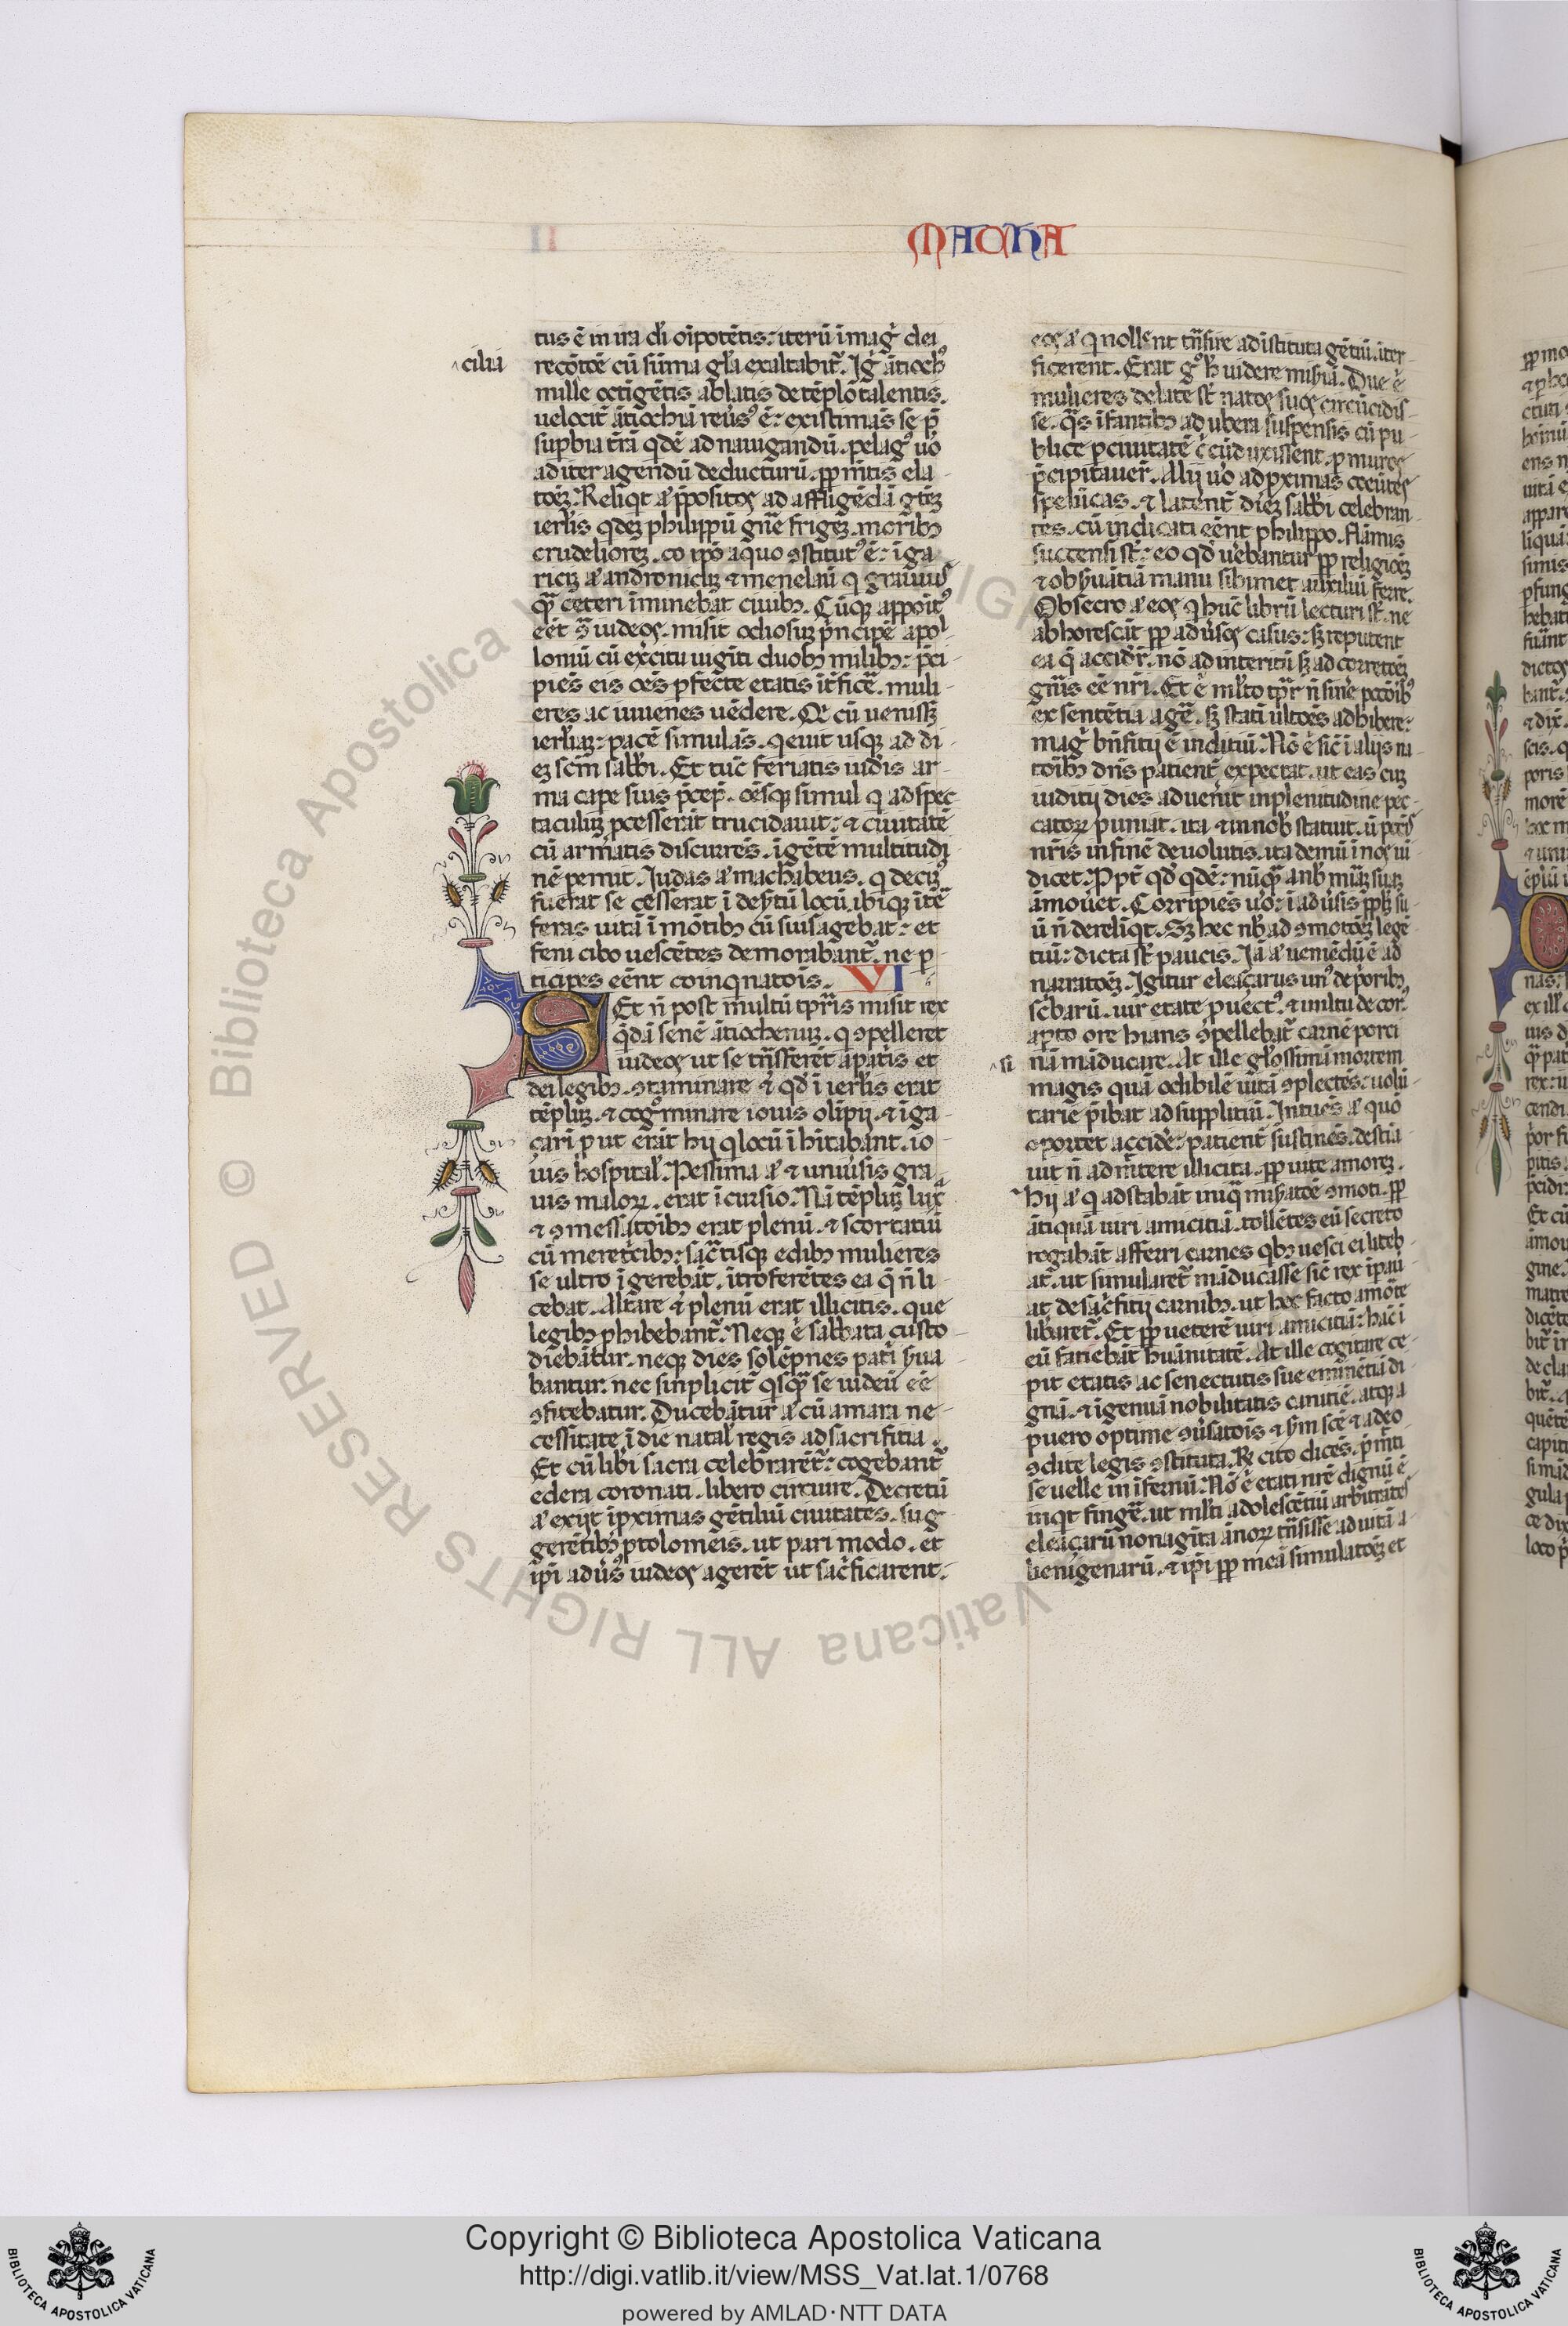 II
MACHA
cilia
tus ē in ira dī oīpotētis: iterū i magͥ dei
recōtōe cū sūma gl̄a exaltabit̄. Igͥ ātiochꝰ
mille octigētis ablatis de tēplo talentis.
uelocit̄ ātiochiā reūsꝰ ē: existimās se p̄
supbia tr̄ā qdē ad nauigandū. pelagꝰ uo
ad iter agendū deducturū. ꝓp m̄tis ela-
toēꝫ. Reliqt aͥ p̄positos ad affligēdā gtēꝫ
ierl̄is qdeꝫ philippū gn̄e frigeꝫ. moribꝫ
crudelioreꝫ. eo ipō a quo ꝯstitutꝰ ē: i ga
riciꝫ aͥ andronicuꝫ ⁊ menelaū q grauiuꝰ
qͣ ceteri īminebāt ciuibꝫ. Cūqꝫ appoitꝰ
eēt ꝯͣ iudeos. misit odiosuꝫ pͥncipē apol-
loniū cū exͥcitu uigīti duobꝫ milibꝫ: p̄ci-
piēs eis oēs pfecte etatis it̄ficͤe. muli-
eres ac iuuenes uēdere. Qͥ cū uenissꝫ
ierl̄imaꝫ: pacē simulās. qeuit usqꝫ ad di-
eꝫ scm̄ sabbi. Et tūc feriatis iudīs ar-
ma capͤe suis p̄cepͭ. oēsqꝫ simul q ad spec-
taculuꝫ pcesserāt trucidauit: ⁊ ciuitatē
cū armatis discurrēs. īgētē multitudi
nē pemit. Iudas aͥ machabeus. q deciꝰ
fuerat se cesserat ī desͥtū locū. ibiqꝫ īt̄
feras uitā ī mōtibꝫ cū suis agebat: et
feni cibo uescētes demorabant̄. ne p-
ticipes eēnt coinqnatōis. VI
Et n̄ post multū tpr̄is misit rex
qdā senē ātiochenuꝫ. q ꝯpelleret
iudeos ut se trn̄sferēt a patͥis et
dei legibꝫ. ꝯtaminare ⁊ qd̄ ī ierl̄is erat
tēpluꝫ. ⁊ cogͦminare iouis olīpij. ⁊ i ga-
çarī put erāt hij q locū ihītabant. io-
uis hospital̄. Pessima aͥ ⁊ uniuͥsis gra-
uis maloꝝ. erat īcursio. Nā tēpluꝫ lux̄
⁊ ꝯmessatoibꝫ erat plenū. ⁊ scortatiū
cū meretͥcibꝫ: sacͣtisqꝫ edibꝫ mulieres
se ultro īgerebāt. ītroferētes ea q n̄ li-
cebat. Altare ⁊ plenū erat illicitis. que
legibꝫ phibebant̄. Neqꝫ ē sabbata custo-
diebātur. neqꝫ dies solēpnes patͥi sͥua-
bantur. nec sīnplicit̄ qsqͣ se iudeū eē
ꝯfitebatur. Ducebātur aͥ cū amara ne-
cessitate ī die natal̄ regis ad sacrifitia.
Et cū libͥi sacra celebrarēt̄: cogebant̄
edera coronati. libero circuire. Decretū
aͥ exijt ī pximas gētiliū ciuitates. sug-
gerētibꝫ ptolomeis. ut pari modo. et
ip̄i adūsꝰ iudeos agerēt ut sacͥficarent.
eos aͥ q nollēnt trn̄sire ad īstituta gētiū. iter-
ficerent. Erat gͦ h̄ uidere misͥiā. Due ē
mulieres delate st̄ natos suos circūcidis-
se. qͣs īfantibꝫ ad ubera suspensis cū pu-
blice p ciuitatē cͥcūduxissent. p muros
p̄cipitauer̄. Alij uͦo ad pximas coeūtes
spelūcas. ⁊ latent̄ dieꝫ sabbi celebran-
tes. cū indicati eēnt philippo. flāmis
succensi st̄: eo qd̄ uͤebantur ꝓp religioēꝫ
⁊ obsͥuātiā manu sibimet auxiliū ferre.
Obsecro aͥ eos q hūc librū lecturi st̄. ne
abhorescāt ꝓp aduͥsos casus: sꝫ reputent
ea q acciderͭ. nō ad interitū sꝫ ad corretoēꝫ
gn̄is eē nr̄i. Et ē ml̄to tp̄r n̄ sinͤe pccōibꝰ
ex sentētia agͤe. sꝫ statī ultōes adhibere:
magͥ bn̄fitij ē inditiū. Nō ē sic̄ ī alijs na-
toibꝫ dn̄s patient̄ expectat. ut eas cuꝫ
iuditij dies aduenͥit in plenitudine pec-
catoꝝ puniat. ita ⁊ in nob̄ statuit. ū pcc̄is
nr̄is in finē deuolutis. ita demū ī nos ui-
dicet. Ppt̄ qd̄ qdē: nūqͣ a nb̄ miāꝫ suāꝫ
āmouet. Corripiēs uͦo: ī aduͥsis ppl̄ꝫ su-
ū n̄ dereliqt. Sꝫ hec nb̄ ad ꝯmotoēꝫ legē-
tiū: dicta st̄ paucis. Iā aͥ ueniēdū ē ad
narratoēꝫ. Igitur eleaçarus unꝰ de pͥoribꝫ
scͥbarū. uir etate puectꝰ. ⁊ uultu decorꝰ.
apto ore hians ꝯpellebat̄ carnē porci-
si
nā māducare. At ille gl̄osissimā mortem
magis quā odibilē uitā ꝯplectēs: uolū-
tarie pͥibat ad supplitiū. Intuēs aͥ quō
oportet accidͤe: patient̄ sustinēs. destia-
uit n̄ ad mͥtere illicita. ꝓp uite amoreꝫ.
Hij aͥ q adstabāt iniqͣ misͥatoē ꝯmoti. ꝓp
ātiquā uiri amicitiā. tollētes eū secreto
rogabāt afferri carnes qbꝫ uesci ei liceb-
at. ut simularet̄ māducasse sic̄ rex īpau-
at de sacͥfitij carnibꝫ. ut hoc facto a morte
libͥaret̄. Et ꝓp ueterē uiri amicitiā: hāc ī
eū faciebāt hūanitatē. At ille cogitare ce-
pit etatis ac senectutis sue eminētiā di-
gnā. ⁊ īgenuā nobilitatis canitiē. atqꝫ a
puero optime ꝯuͥsatois ⁊ sͥm scē ⁊ a deo
ꝯdite legis ꝯstituta. Rͦ cito dicēs. pͥmīti
se uelle in īfernū. Nō ē etati nr̄e dignū ē
inqt fingͤe. ut ml̄ti adolescētiū arbitrātes
eleaçarū nonagīta ānoꝝ trn̄sisse ad uitā a-
lienigenarū. ⁊ ip̄i ꝓp meā simulatoēꝫ et
Copyright © Biblioteca Apostolica Vaticana
http://digi.vatlib.it/view/MSS_Vat.lat.1/0768
powered by AMLAD·NTT DATA